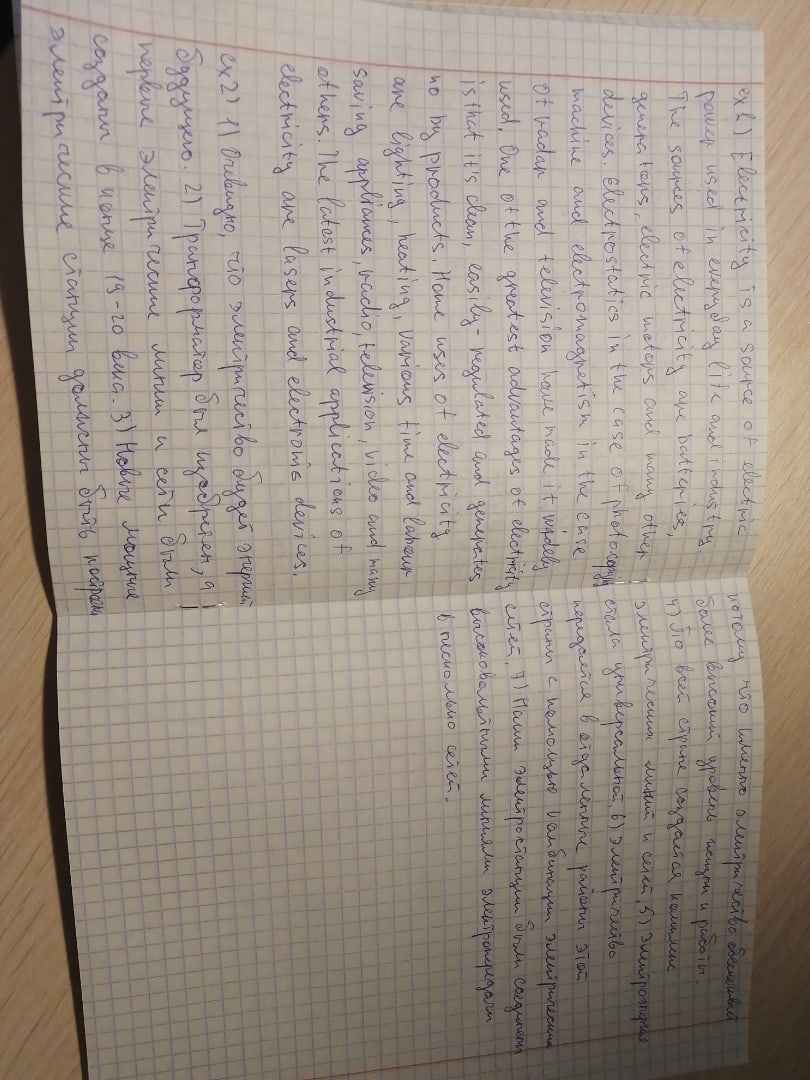 ex 1) Electricity is a source of electric
power used in everyday life and industry.
The sources of electricity are batteries,
generators, electric motors and many other
devices. Electrostatics in the case of photocopy
machine and electromagnetism in the case
of radar and television have made it widely
used. One of the greatest advantages of electricity
is that it's clean, easily-regulated and generates
no by products. Home uses of electricity
are lighting, heating, various time and labour
saving appliances, radio, television, video and many
others. The latest industrial applications of
electricity are lasers and electronis devices.
ex2) 1) Очевидно, что электричество будет энергией
будущего. 2) Трансформатор был изобретен, а
первые электрические линии и сети были
созданы в конце 19-20 века. 3) Новые мощные
электрические станции должны быть построены
потому что именно электричество обеспечивает
более высокий уровень жизни и работы.
4) По всей стране создается
электрических линий и сетей. 5) Электроэнергия
стала универсальной. 6) Электричество
передается в отдаленные районы этой
страны с помощью комбинации электрических
сетей. 7) Наши электростанции были соединены
высоковольтными линиями электропередачи
в несколько сетей.